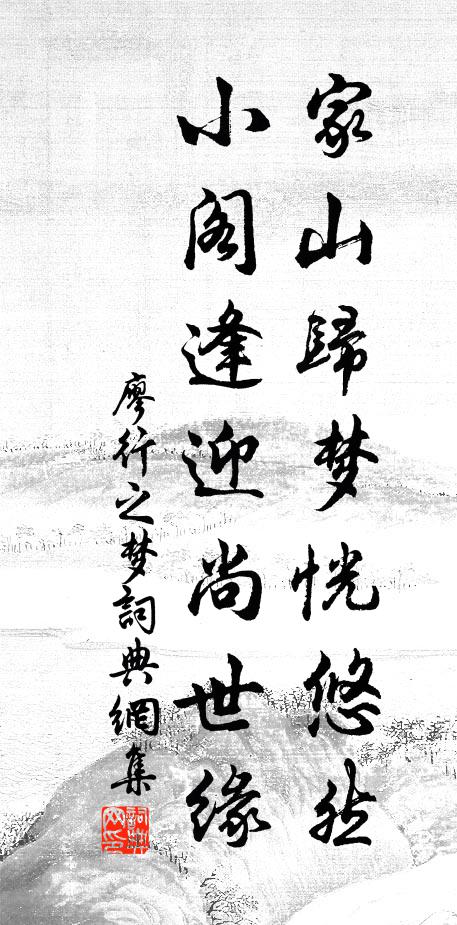 家山歸梦恍悠然
小阁逢迎尚世缘
廖行之梦詞典網集